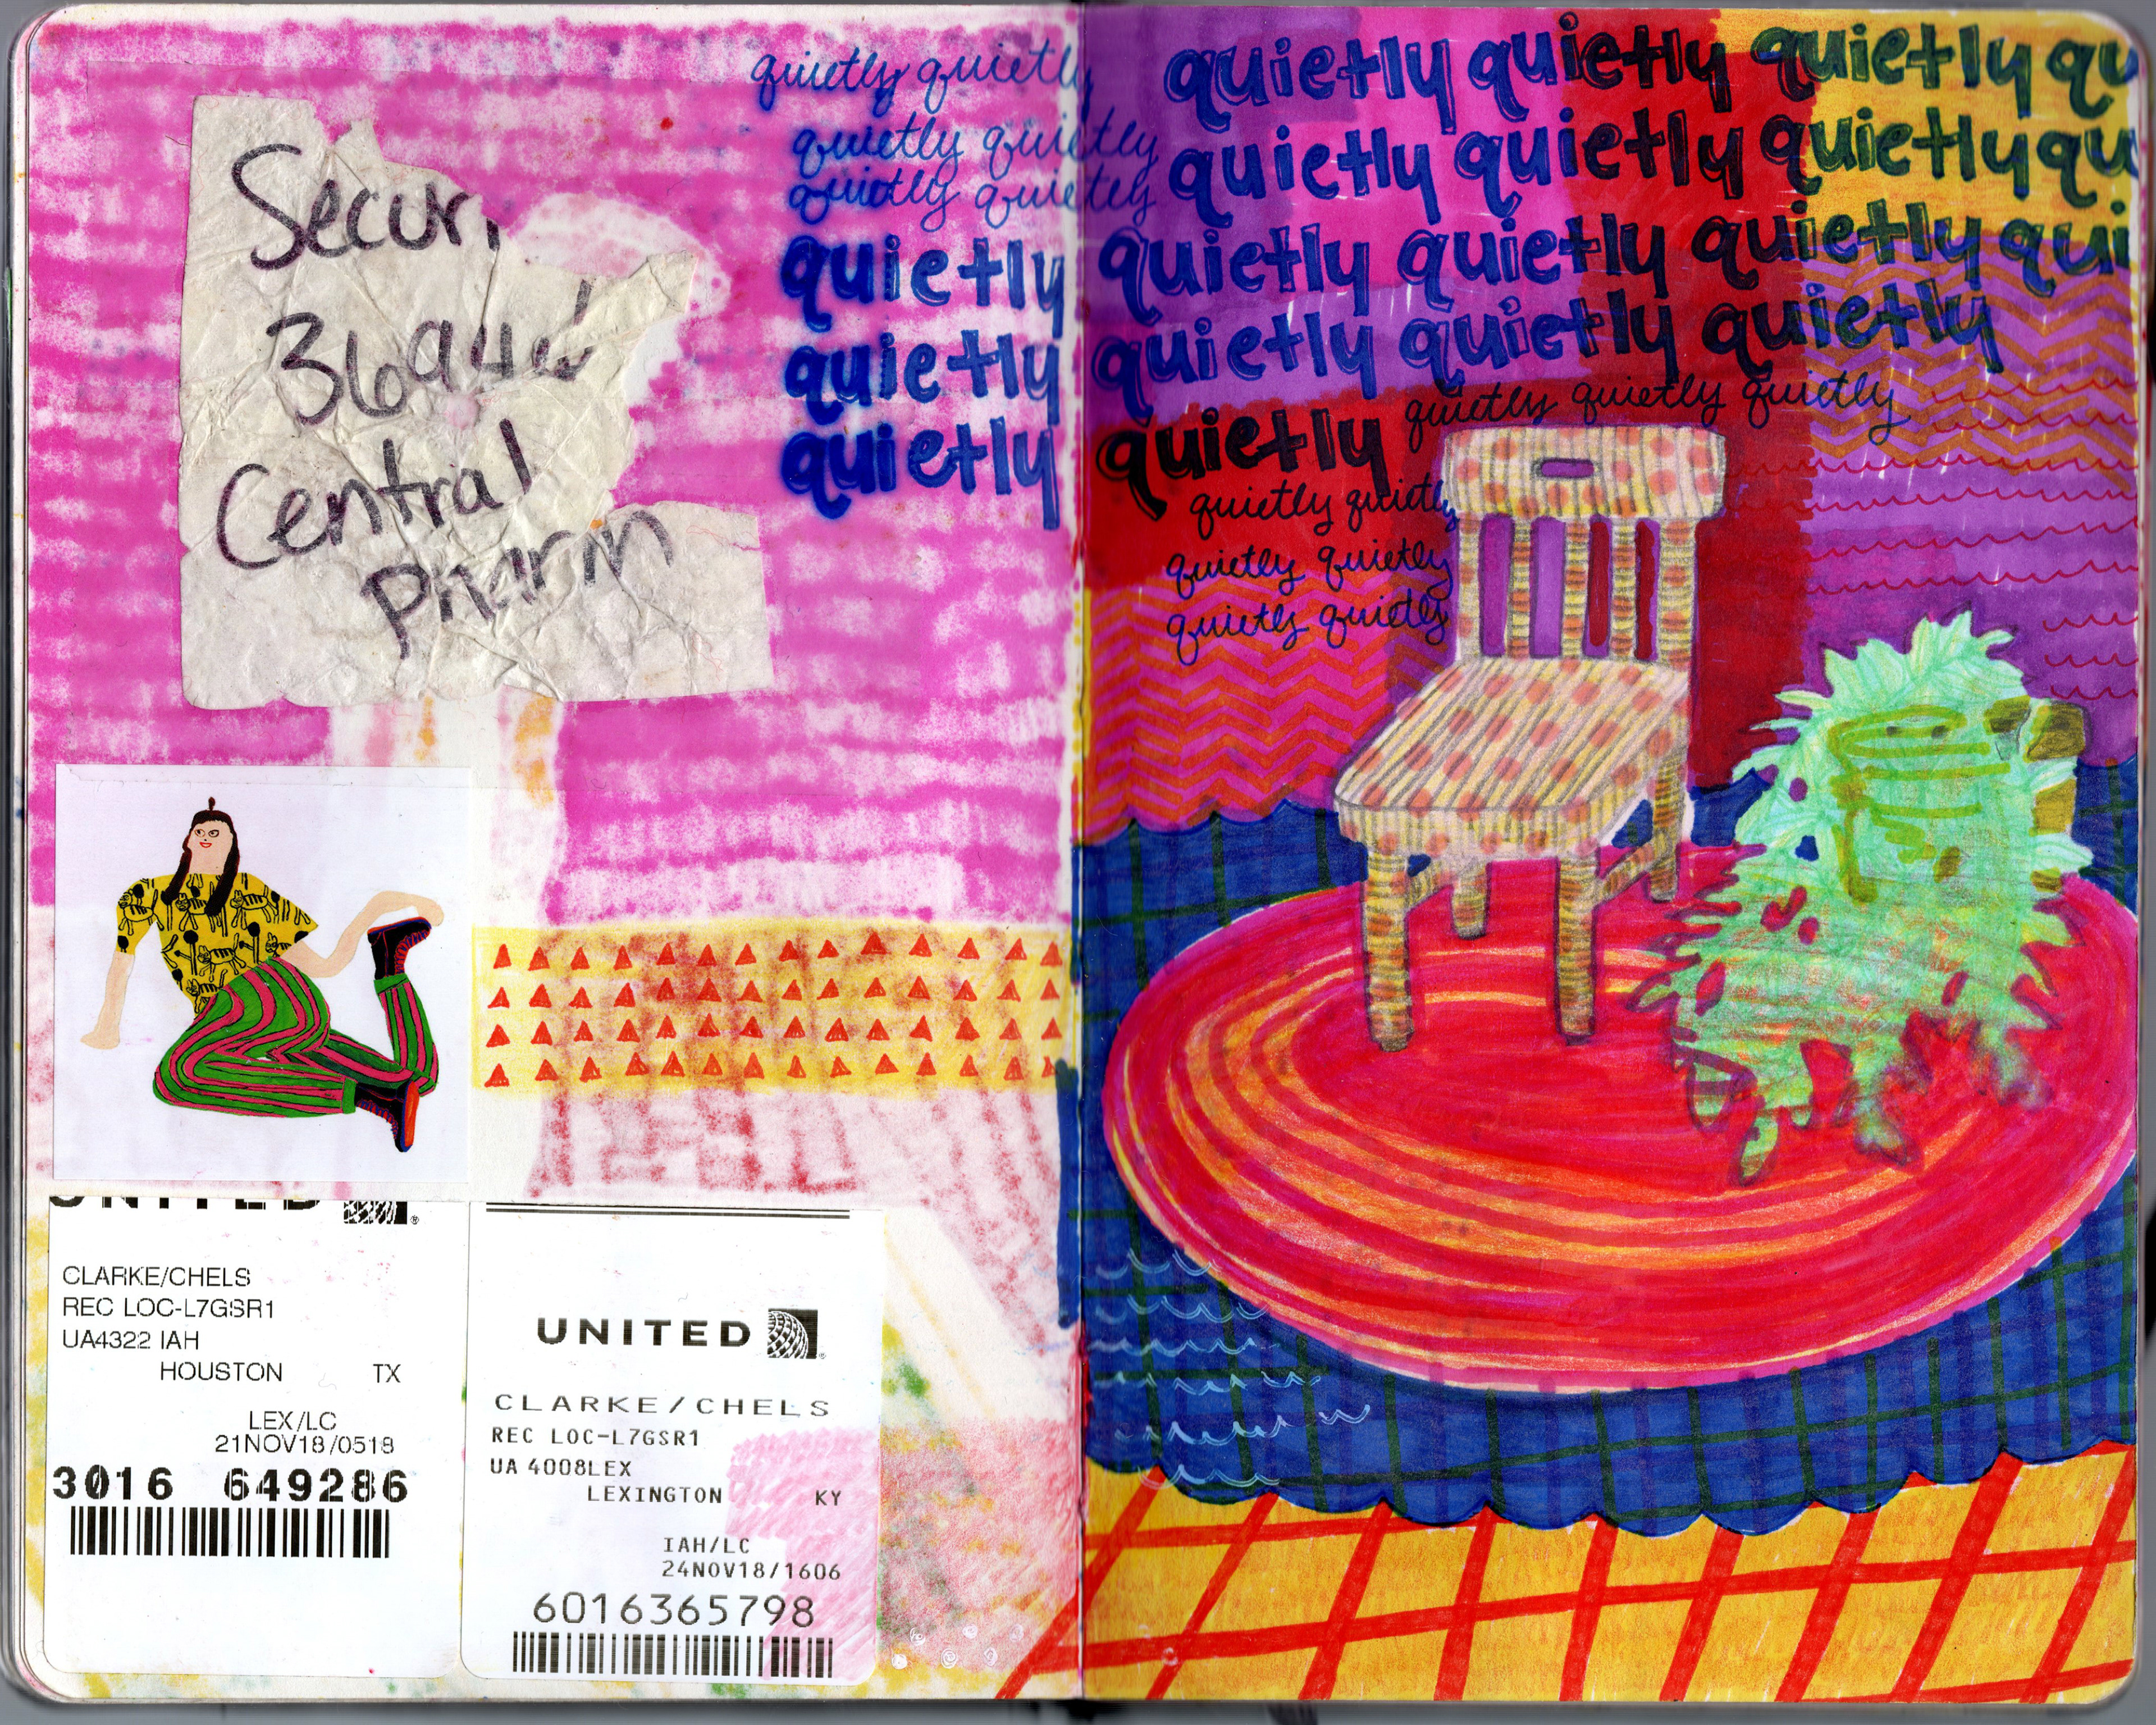 Securi
Central
Pharm
UNITED
CLARKE/CHELS
REC LOC-L7GSR1
UA4322 IAH
HOUSTON TX
LEX/LC
21NOV18/0518
3016 649286
UNITED
CLARKE/CHELS
REC LOC-L7GSR1
UA 4008LEX
LEXINGTON KY
IAH/LC
24NOV18/1606
6016365798
quietly quietly quietly quietly quietly qu
quietly quietly quietly quietly quietly qu
quietly quietly
quietly quietly quietly quietly qui
quietly quietly quietly quietly
quietly quietly quietly quietly quietly
quietly quietly
quietly quietly
quietly quietly